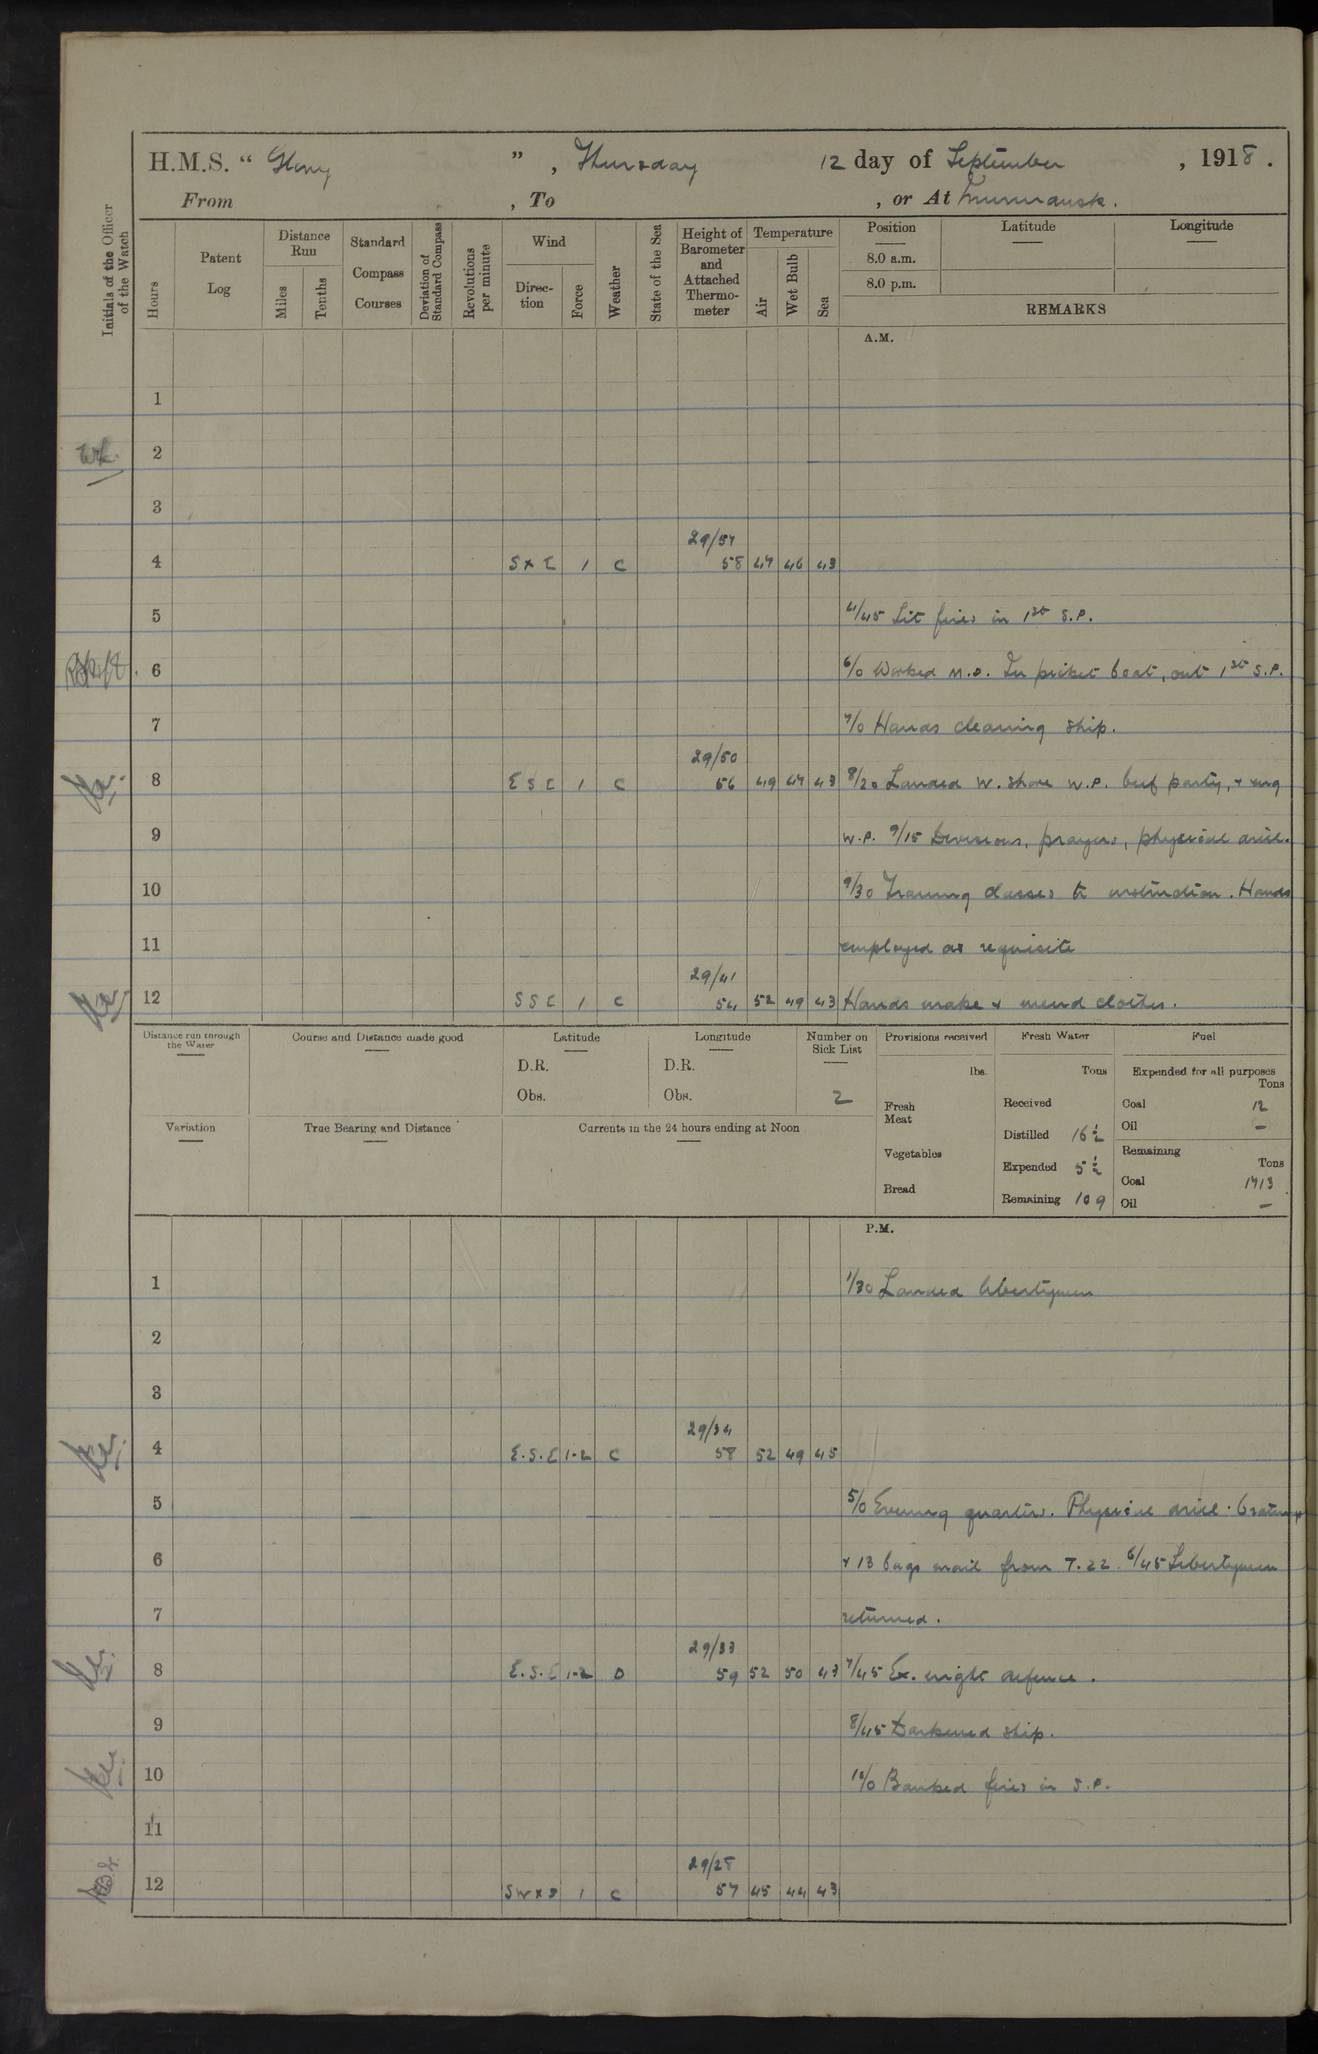 H.M.S. “ Glory ” , Thursday 12 day of September , 1918 .
From , To , or At Murmansk .
Initials of the Officer of the Watch
Hours
Patent Log
Distance Run
Miles
Tenths
Standard Compass Courses
Deviation of Standard Compass
Revolutions per minute
Wind
Direction
Force
Weather
State of the Sea
Height of Barometer and Attached Thermometer
Temperature
Air
Wet Bulb
Sea
Position
8.0 a.m.
8.0 p.m.
Latitude
Longitude
REMARKS
A.M.
1
2
3
29/57
4 S x E 1 C 58 47 46 43
5 4/45 Lit fires in 1st S.P.
6 6/0 Worked M.D. In picket boat, out 1st S.P.
7 7/0 Hands cleaning ship.
29/50
8 E S E 1 C 56 49 47 43 8/20 Landed W. shore W.P. beef party, +
9 W.P. 9/15 Divisions, prayers, physical drill.
10 9/30 Training classes to instruction. Hands
11 employed as requisite
29/41
12 S S E 1 C 54 52 49 43 Hands make + mend clothes.
Distance run through the Water
Course and Distance made good
Latitude
D.R.
Obs.
Longitude
D.R.
Obs.
Number on Sick List
2
Provisions received
lbs.
Fresh Meat
Vegetables
Bread
Fresh Water
Tons
Received
Distilled 16 ½
Expended 5 ½
Remaining 109
Fuel
Expended for all purposes
Tons
Coal 12
Oil —
Remaining
Tons
Coal 1713
Oil —
Variation
True Bearing and Distance
Currents in the 24 hours ending at Noon
P.M.
1 1/30 Landed libertymen
2
3
29/34
4 E.S.E 1-2 C 58 52 49 45
5 5/0 Evening quarters. Physical drill.
6 + 13 bags mail from T.22. 6/45 Libertymen
7 returned.
29/33
8 E.S.E 1-2 O 59 52 50 43 7/45 Ex. night defence.
9 8/45 Darkened ship.
10 10/0 Banked fires in S.P.
11
29/28
12 SWxS 1 C 57 45 44 43